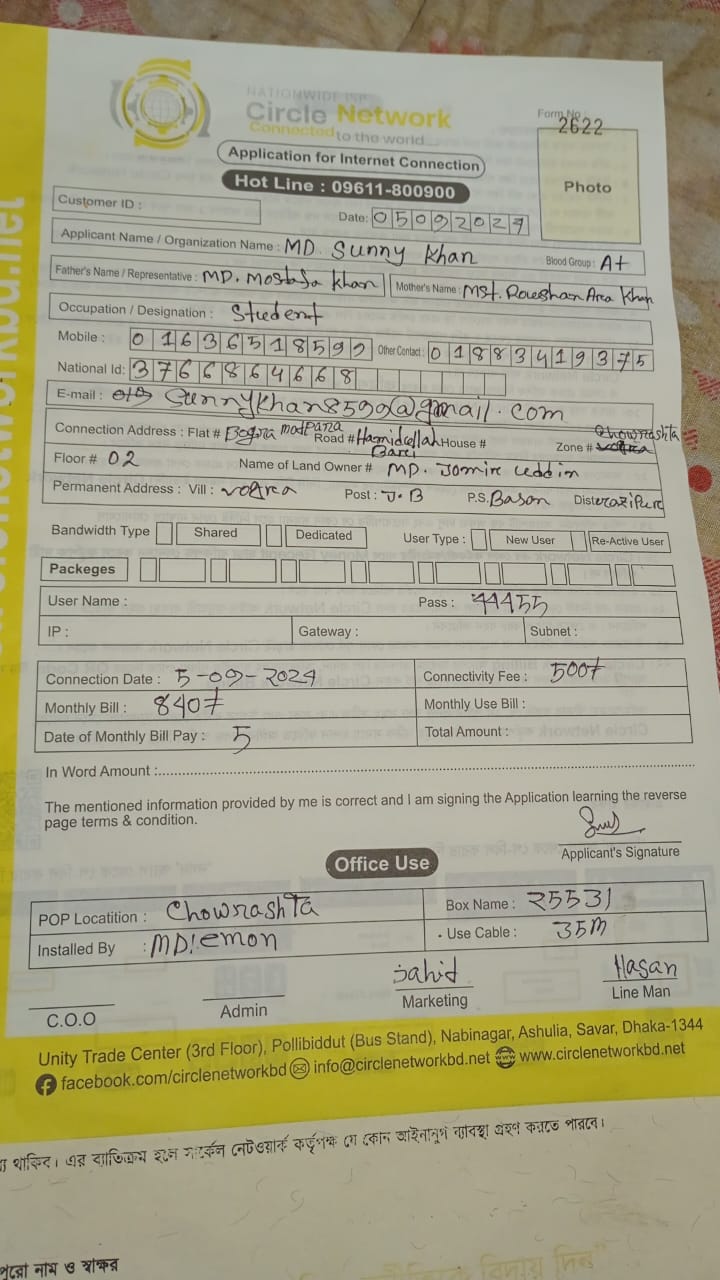 NATIONWIDE ISP
Circle Network
Connected to the world...
Form No
2622
Application for Internet Connection
Hot Line : 09611-800900
Photo
Customer ID :
Date: 05092024
Applicant Name / Organization Name : MD. Sunny Khan Blood Group : A+
Father's Name / Representative : MD. Mostafa Khan Mother's Name : Mst. Roushan Ara Khan
Occupation / Designation : Student
Mobile : 01636518599 Other Contact : 01883419375
National Id: 3766864668
E-mail : Sunnykhan8599@gmail.com
Connection Address : Flat # Bogra matpara Road # Hamidullah Bari House # Zone # Chowrashta
Floor # 02 Name of Land Owner # MD. Jomir Uddin
Permanent Address : Vill : Post : J.B P.S. Bason Dist: Gazipur
Bandwidth Type Shared Dedicated User Type : New User Re-Active User
Packeges
User Name : Pass : 44455
IP : Gateway : Subnet :
Connection Date : 5-09-2024 Connectivity Fee : 500/-
Monthly Bill : 840/- Monthly Use Bill :
Date of Monthly Bill Pay : 5 Total Amount :
In Word Amount :
The mentioned information provided by me is correct and I am signing the Application learning the reverse
page terms & condition.
Applicant's Signature
Office Use
POP Locatition : Chowrashta Box Name : 25531
Installed By : MD! emon Use Cable : 35M
Jahid Hasan
C.O.O Admin Marketing Line Man
Unity Trade Center (3rd Floor), Pollibiddut (Bus Stand), Nabinagar, Ashulia, Savar, Dhaka-1344
facebook.com/circlenetworkbd info@circlenetworkbd.net www.circlenetworkbd.net
থাকিব। এর ব্যতিক্রম হলে সার্কেল নেটওয়ার্ক কর্তৃপক্ষ যে কোন আইনানুগ ব্যবস্থা গ্রহণ করতে পারবে।
পুরো নাম ও স্বাক্ষর